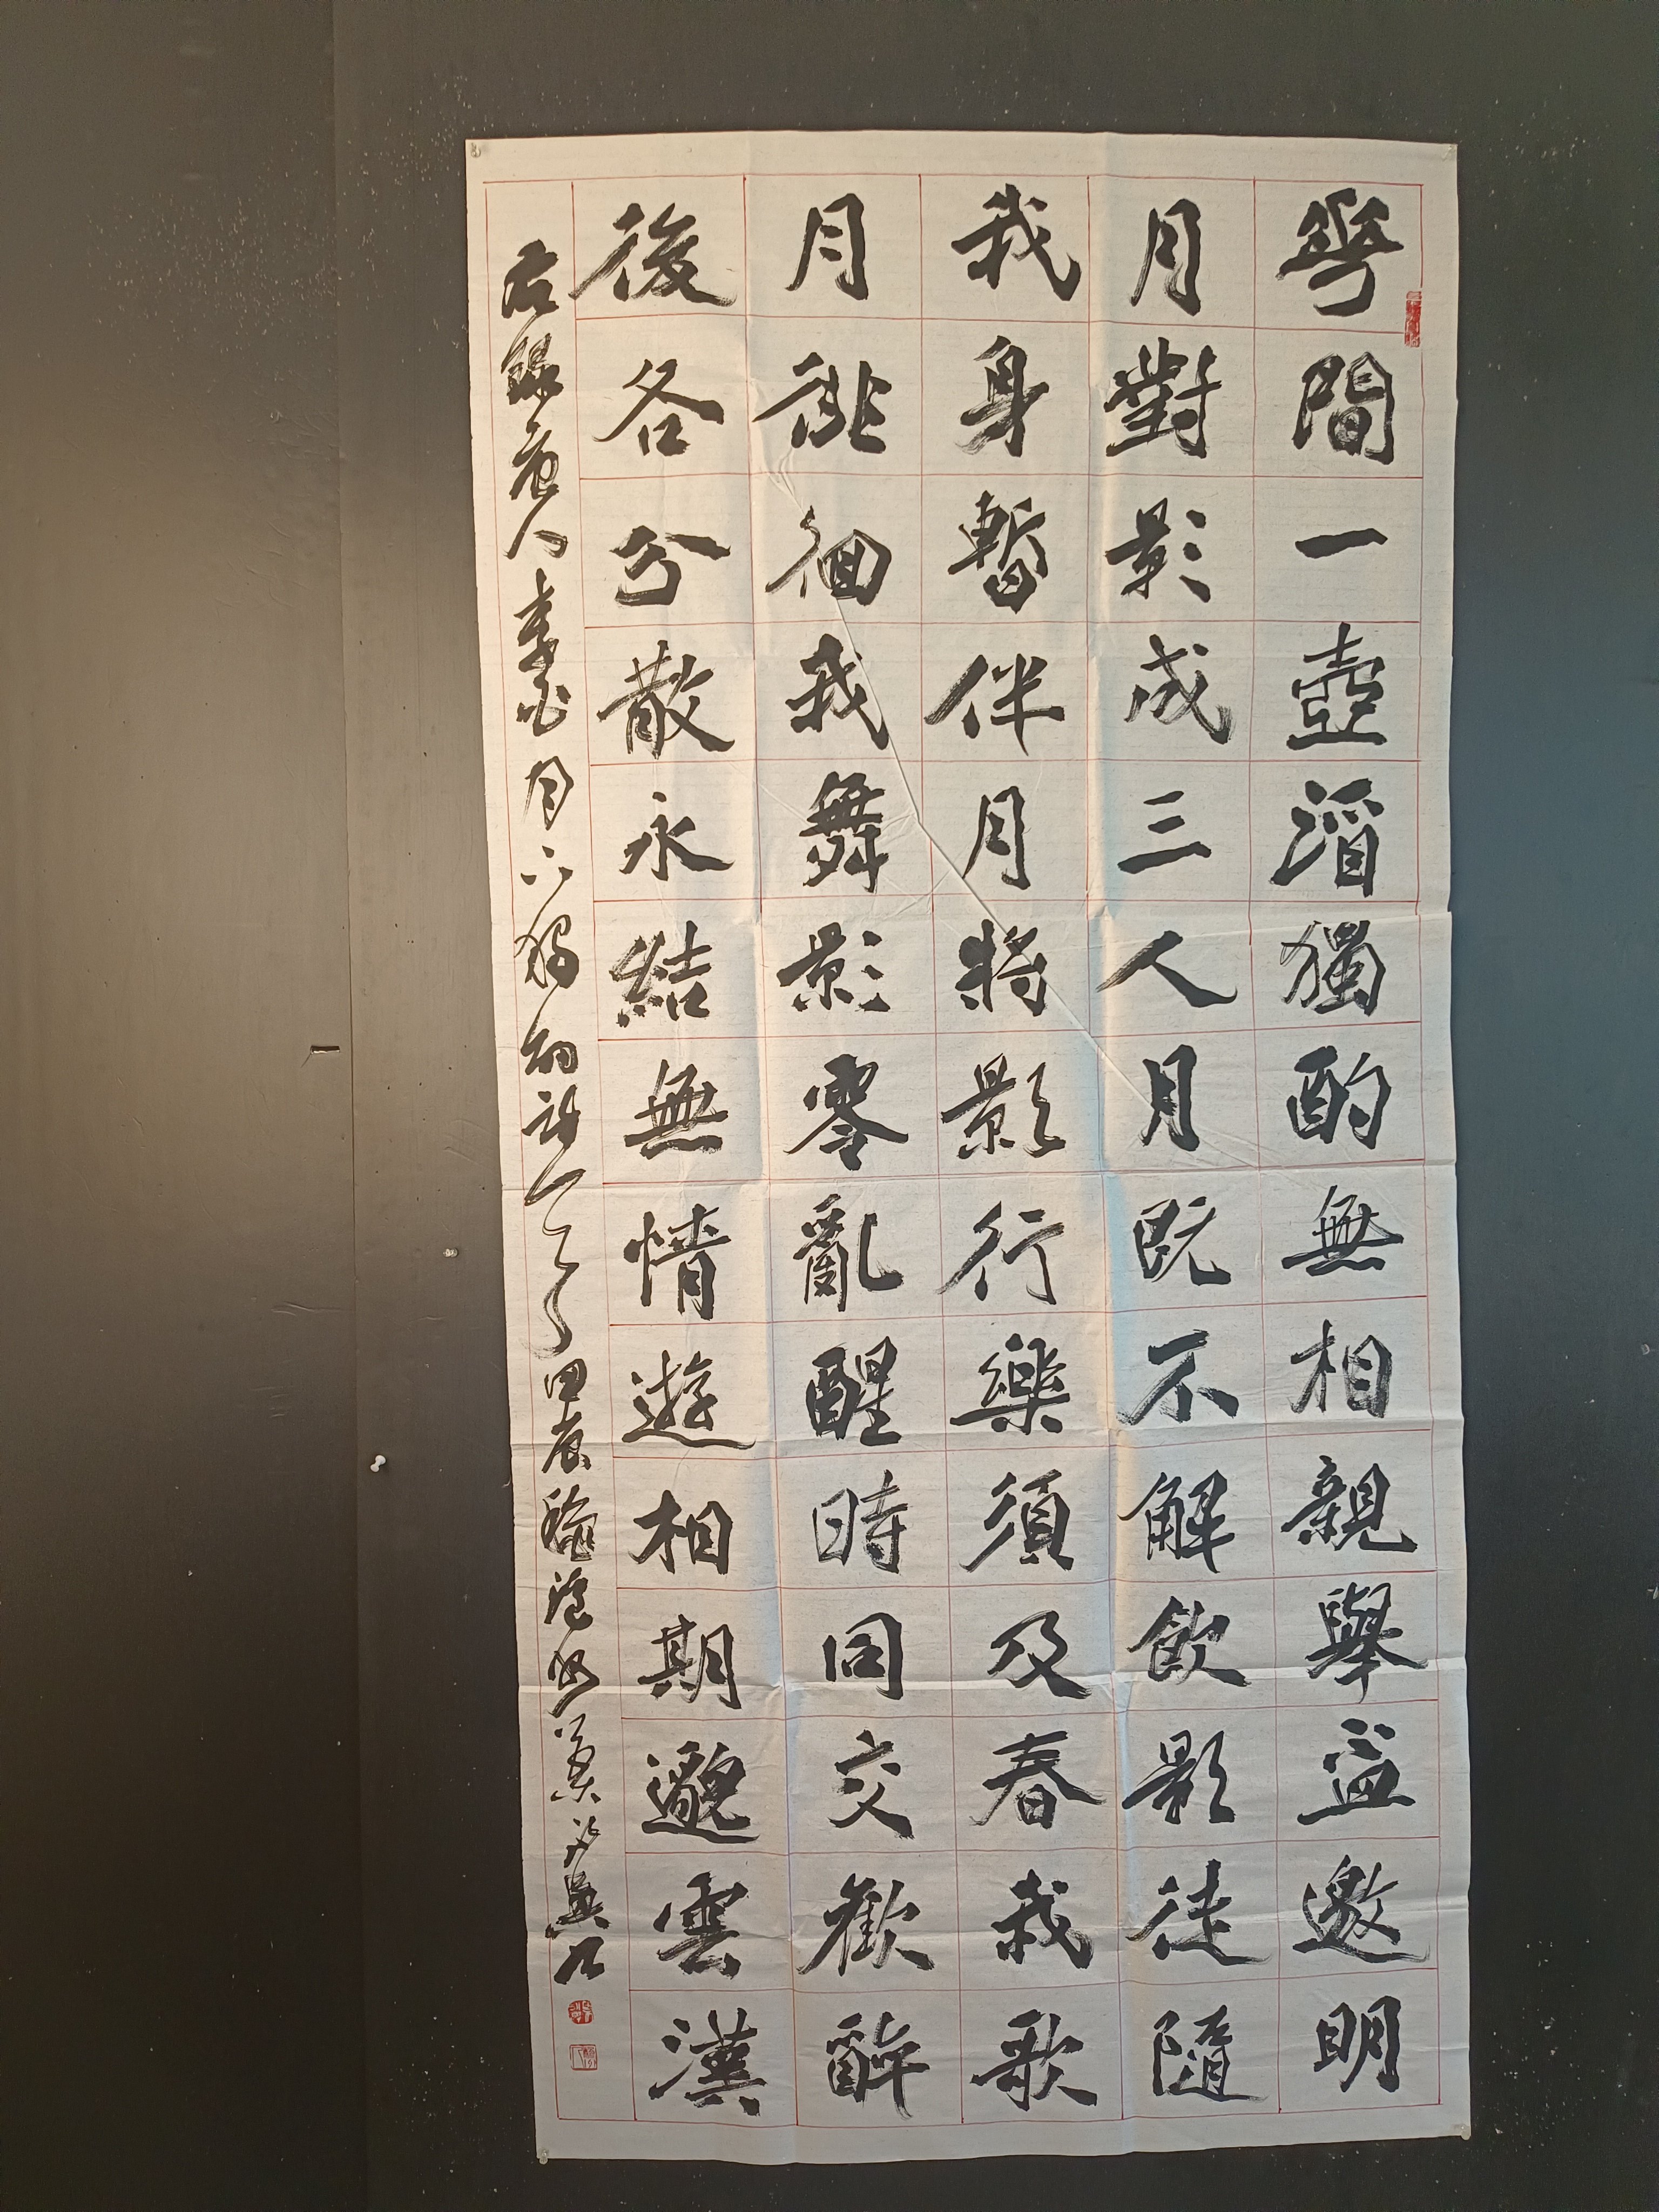 華間一壺酒獨酌無相親舉盃邀明
月對影成三人月既不解飲影徒隨
我身暫伴月將影行樂須及春我歌
月徘徊我舞影零亂醒時同交歡醉
後各分散永結無情遊相期邈雲漢
右錄唐人李白月下獨酌詩一首甲辰